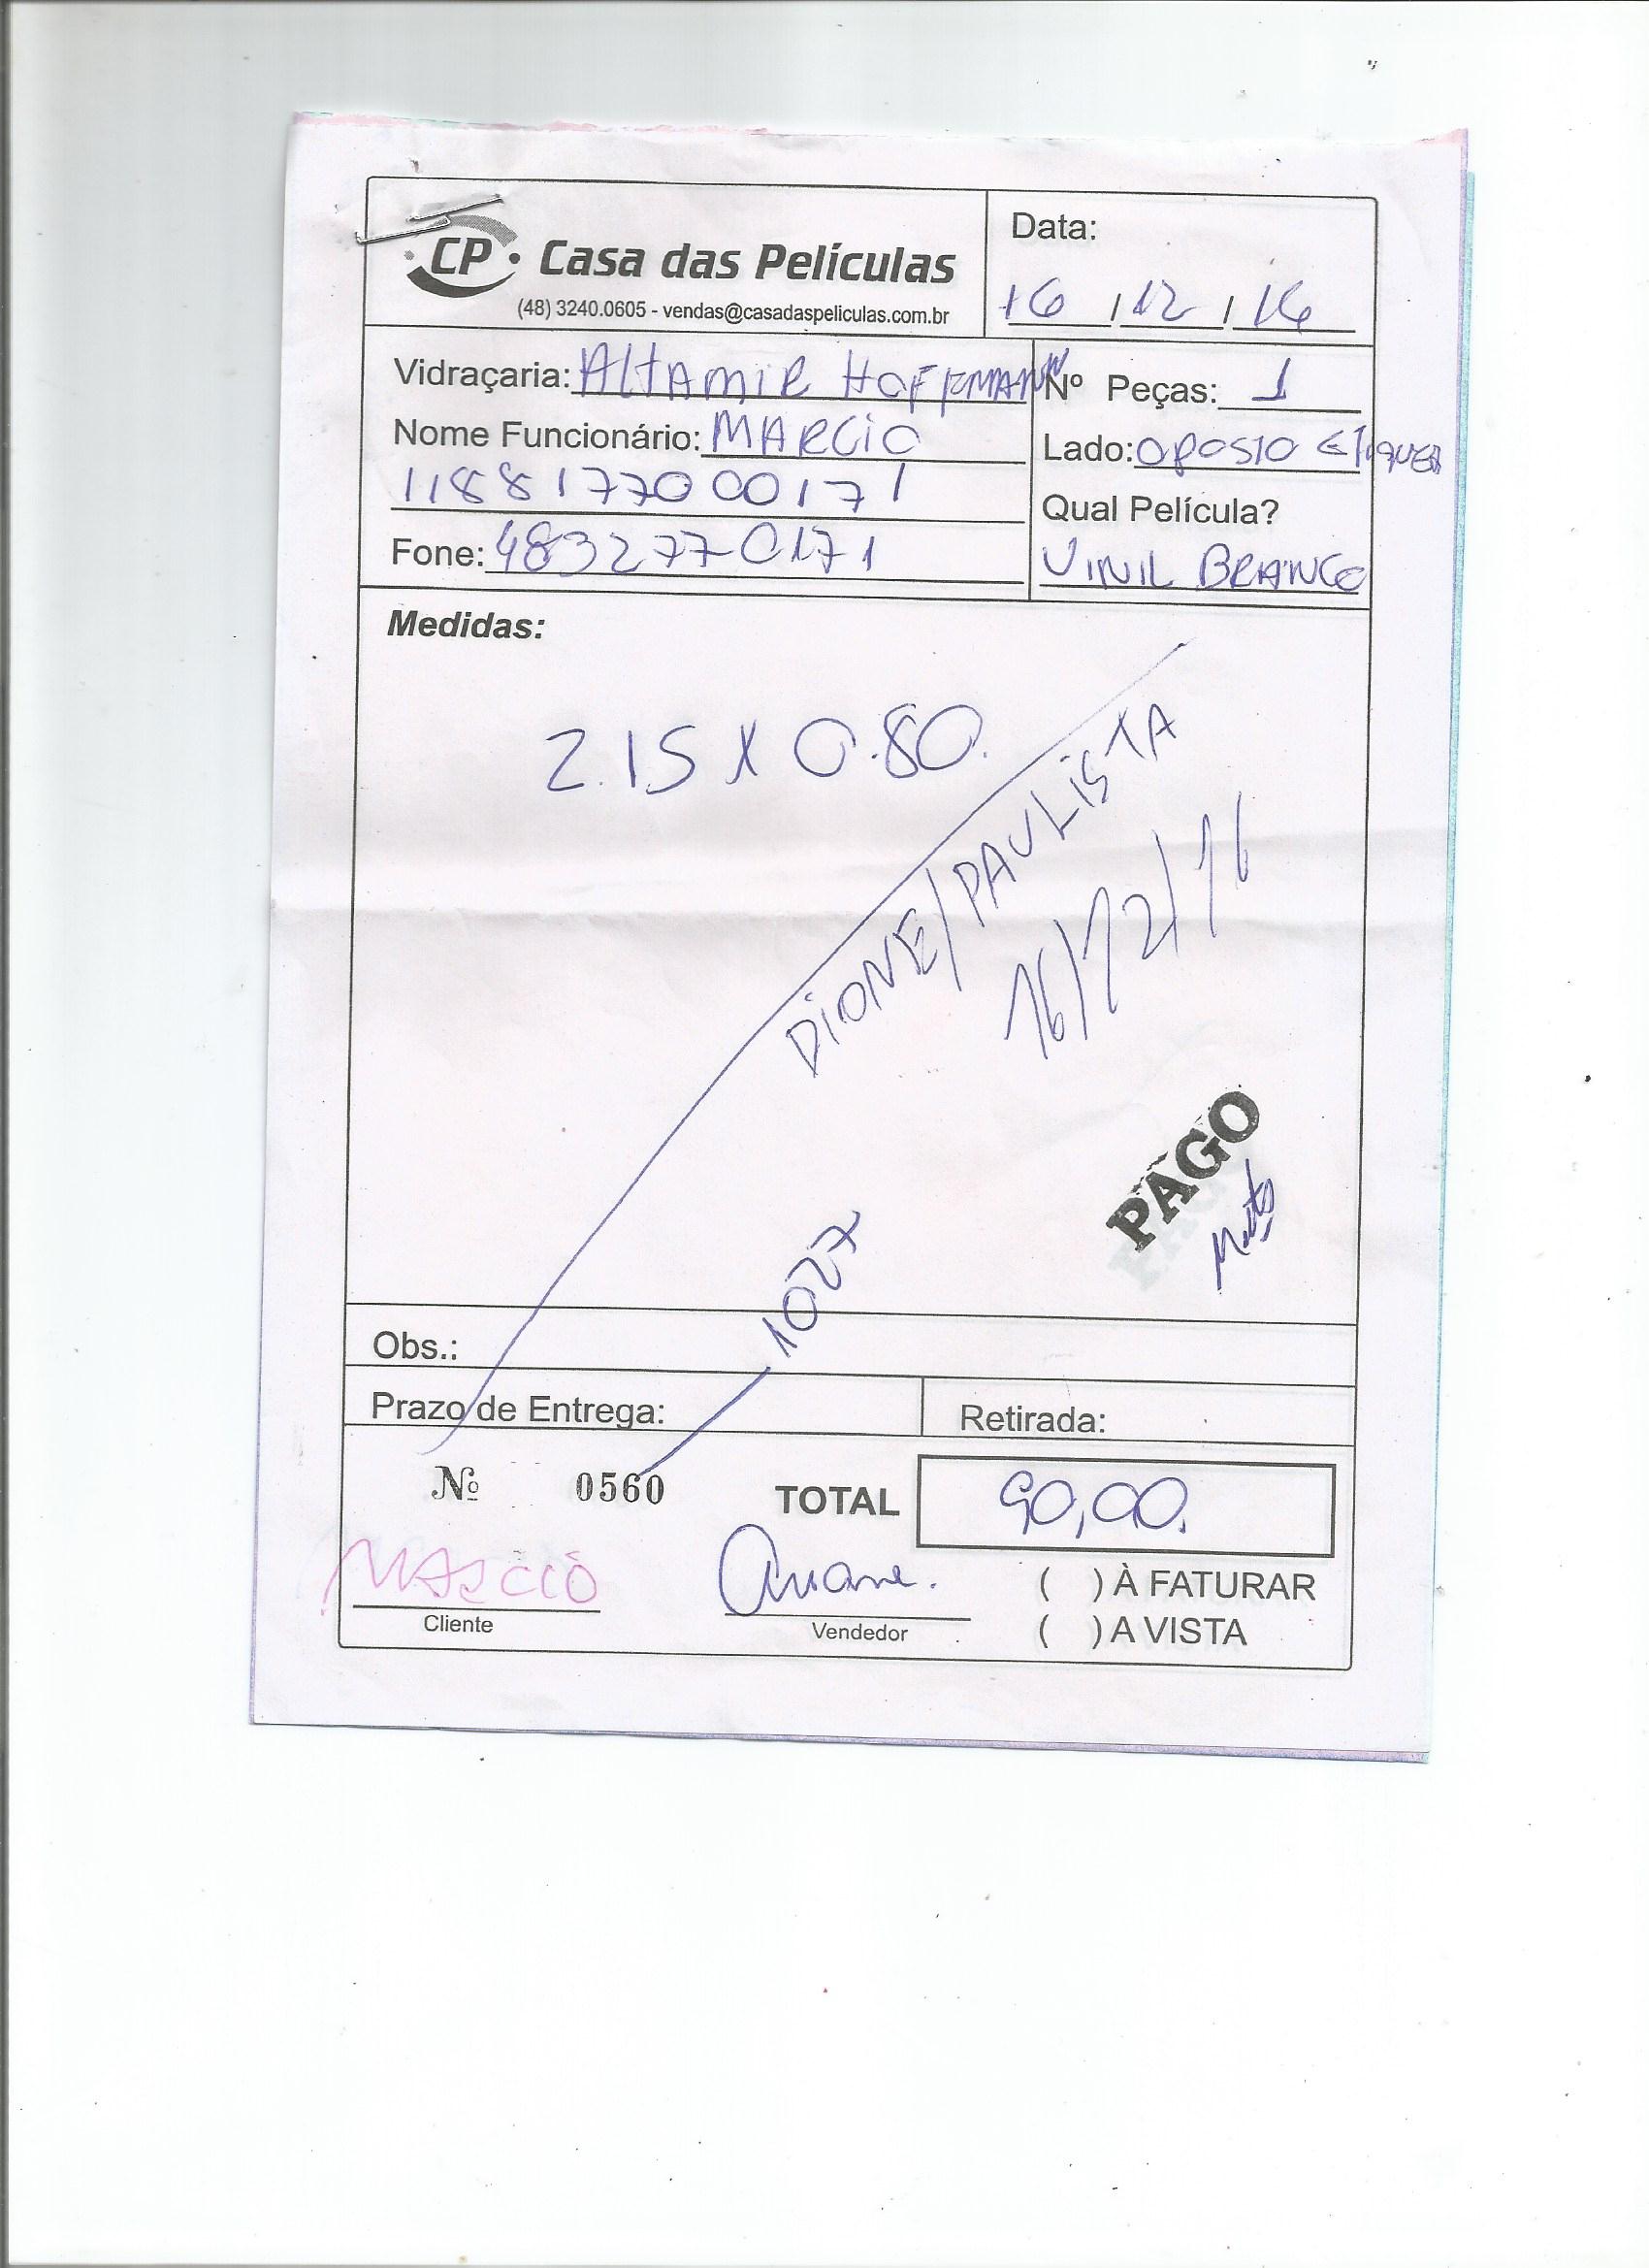 CP Casa das Películas
(48) 3240.0605 - vendas@casadaspeliculas.com.br
Data:
16 / 12 / 16
Vidraçaria: AltAmiR HOFFMANN
Nº Peças: 1
Nome Funcionário: MARCIO
Lado: OPOSTO
11881770000171
Qual Película?
Fone: 4832770171
VINIL BRANCO
Medidas:
2.15 X 0.80.
DIONE/PAULISTA
16/12/16
PAGO
1027
Obs.:
Prazo de Entrega:
Retirada:
Nº 0560
TOTAL 90,00.
MARCIO
Cliente
Vendedor
( ) À FATURAR
( ) A VISTA